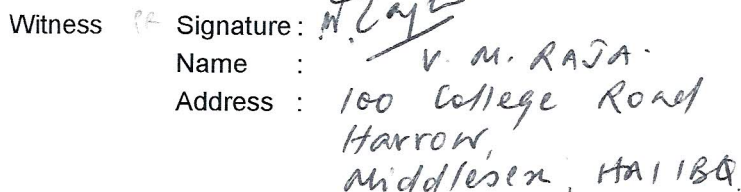 Witness PR Signature :
Name : V. M. RAJA.
Address : 100 College Road
Harrow,
Middlesex, HA1 1BQ